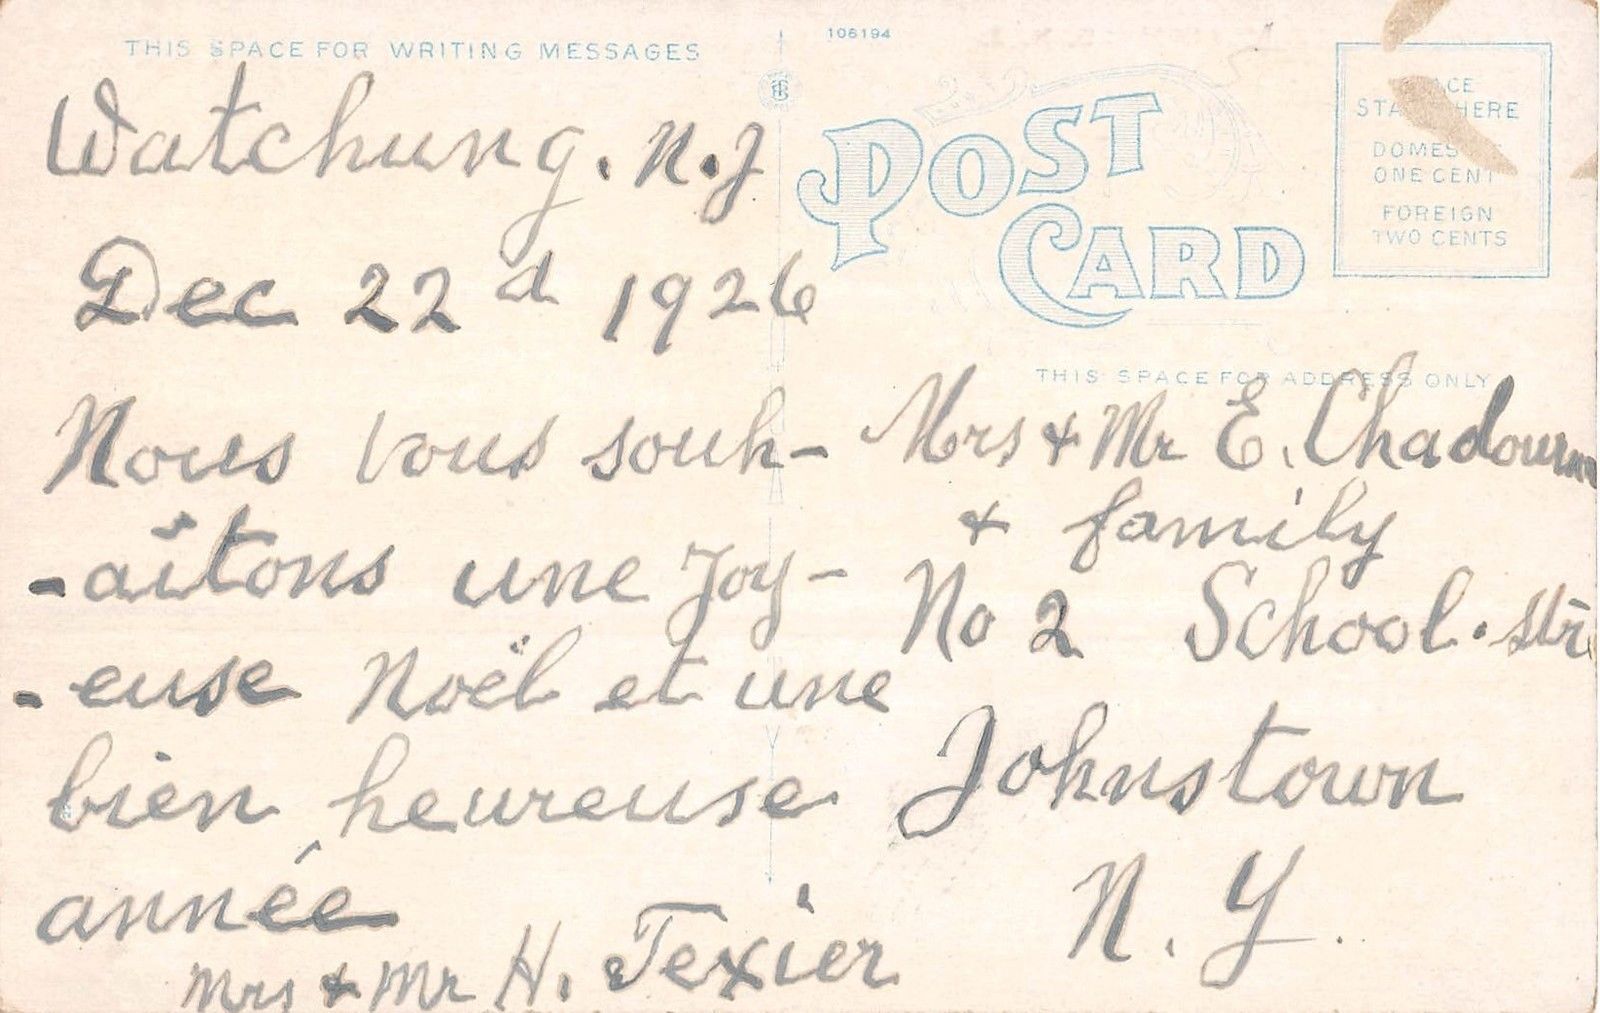 THIS SPACE FOR WRITING MESSAGES
Watchung. N.J
Dec 22d 1926
Nous vous souh-
-aîtons une Joy-
-euse Noël et une
bien heureuse
année
Mrs & Mr H. Texier
106194
POST
CARD
STA HERE
DOMES
ONE CENT
FOREIGN
TWO CENTS
THIS SPACE FOR ADDRESS ONLY
Mrs & Mr E. Chadourn
& family
No 2 School. Str
Johnstown
N. Y.